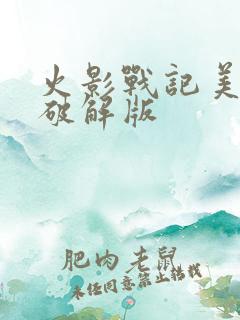 火影戰記美
破解版
肥肉老鼠
未经同意禁止转载